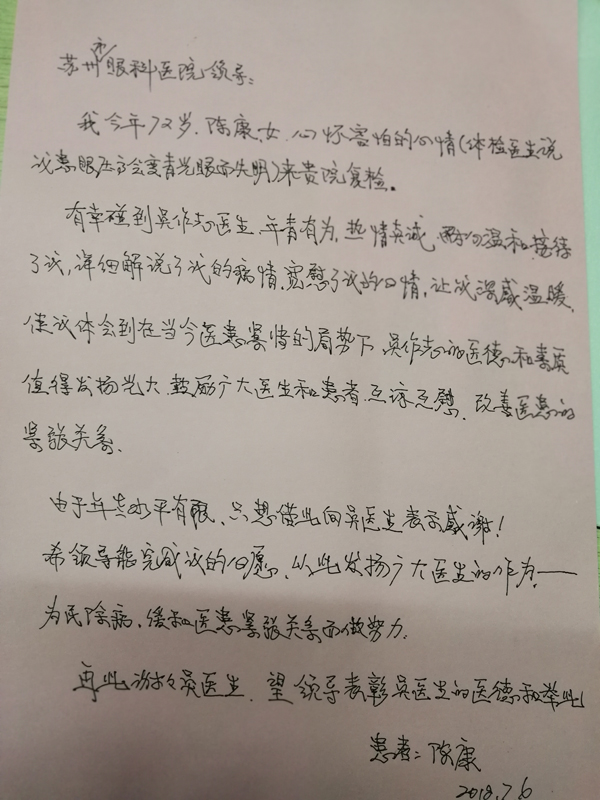 苏州市眼科医院领导：
我今年72岁，陈康，女，心怀害怕的心情（体检医生说
我患眼压高会变青光眼而失明）来贵院复检。
有幸碰到吴作志医生，年青有为，热情真诚，耐心温和接待
了我，详细解说了我的病情，宽慰了我的心情，让我深感温暖，
使我体会到在当今医患紧情的局势下，吴作志的医德和素质
值得发扬光大，鼓励广大医生和患者，互谅互慰，改善医患的
紧张关系。
由于年老水平有限，只想借此向吴医生表示感谢！
希领导能完成我的心愿，以此发扬广大医生的作为——
为民除病，缓和医患紧张关系而做努力。
再此谢谢吴医生，望领导表彰吴医生的医德和举此
患者：陈康
2018.7.6